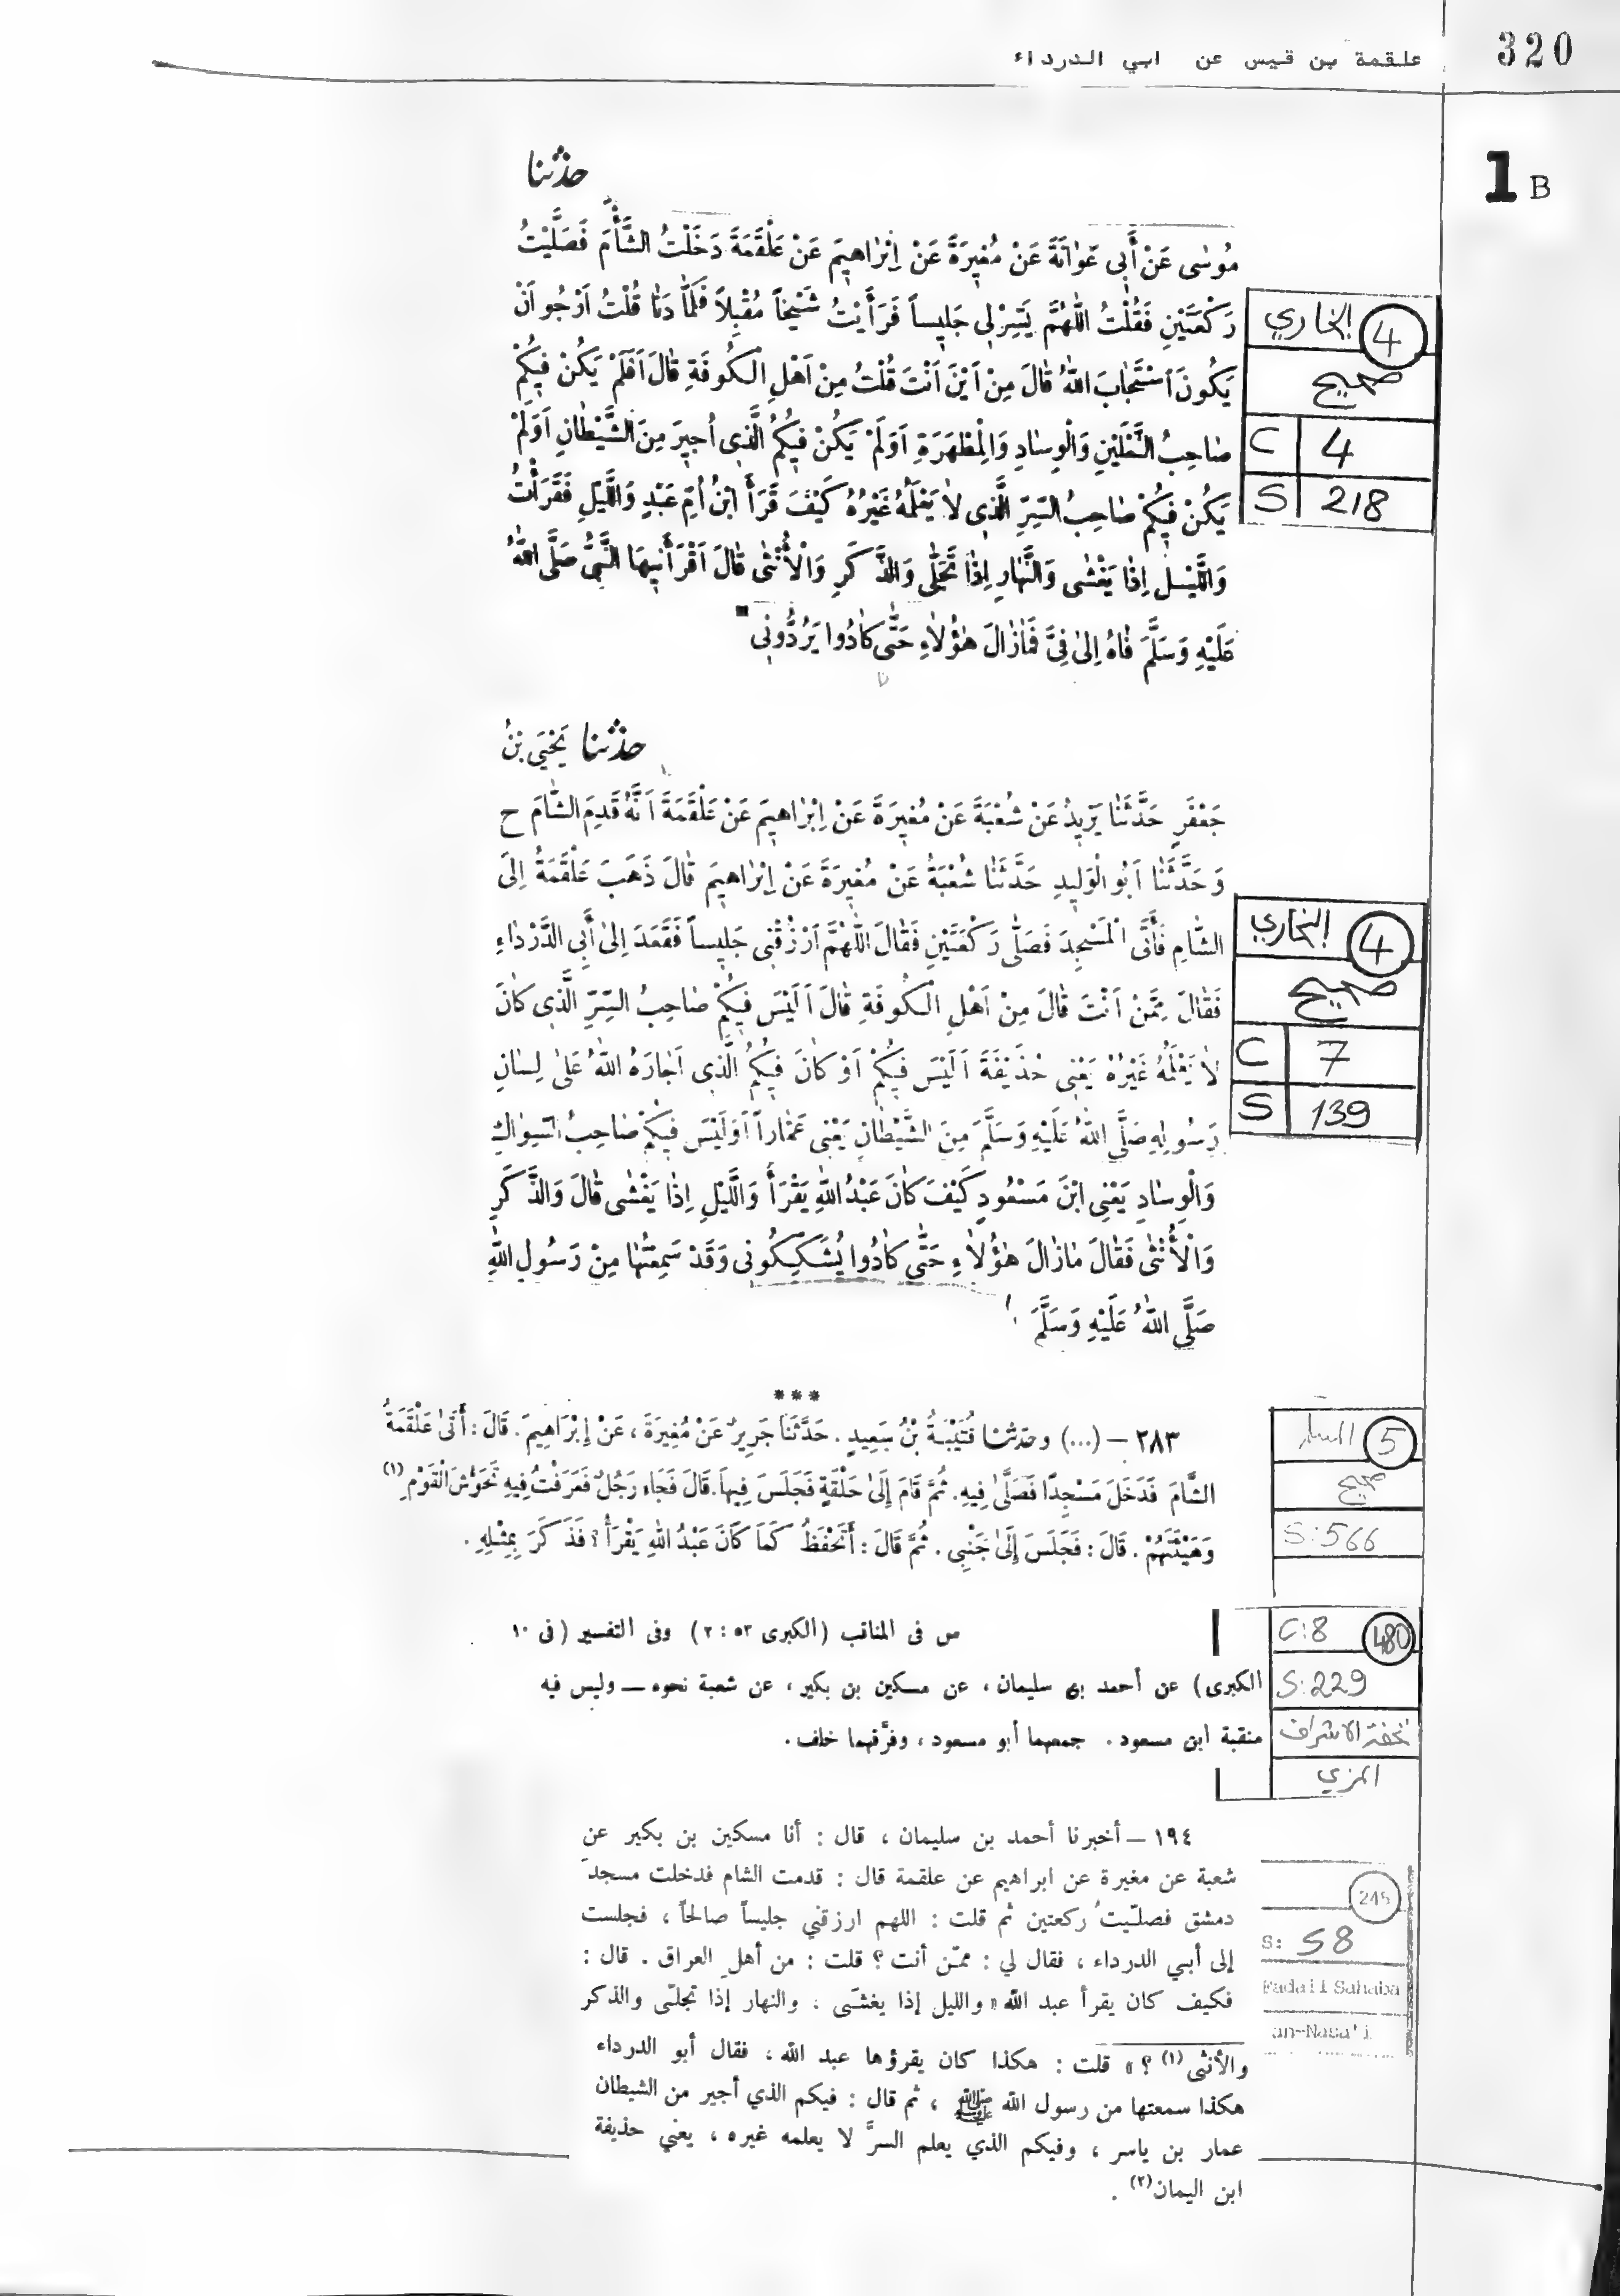 علقمة بن قيس عن ابي الدرداء
320
1 B
حدثنا
مُوسٰى عَنْ أَبِى عَوٰانَةَ عَنْ مُغِيرَةَ عَنْ اِبْرٰاهِيمَ عَنْ عَلْقَمَةَ دَخَلْتُ الشَّأْمَ فَصَلَّيْتُ
رَكْعَتَيْنِ فَقُلْتُ اللّٰهُمَّ يَسِّرْلِى جَلِيساً فَرَأَيْتُ شَيْخاً مُقْبِلاً فَلَمَّا دَنٰا قُلْتُ اَرْجُو اَنْ
يَكُونَ اَسْتَجٰابَ اللّٰهُ قٰالَ مِنْ اَيْنَ اَنْتَ قُلْتُ مِنْ اَهْلِ الْكُوفَةِ قٰالَ اَفَلَمْ يَكُنْ فِيكُمْ
صٰاحِبُ النَّعْلَيْنِ وَالْوِسٰادِ وَالْمِطْهَرَةِ اَوَلَمْ يَكُنْ فِيكُمُ الَّذِى اُجِيرَ مِنَ الشَّيْطٰانِ اَوَلَمْ
يَكُنْ فِيكُمْ صٰاحِبُ السِّرِّ الَّذِى لاٰ يَعْلَمُهُ غَيْرُهُ كَيْفَ قَرَأَ ابْنُ اُمِّ عَبْدٍ وَاللَّيْلِ فَقَرَأْتُ
وَاللَّيْلِ اِذٰا يَغْشٰى وَالنَّهٰارِ اِذٰا تَجَلّٰى وَالذَّكَرِ وَالْأُنْثٰى قٰالَ اَقْرَأَنِيهَا النَّبِىُّ صَلَّى اللّٰهُ
عَلَيْهِ وَسَلَّمَ فٰاهُ اِلىٰ فِىَّ فَمٰازٰالَ هٰؤُلاٰءِ حَتّٰى كٰادُوا يَرُدُّونِى
البخاري 4
صحيح
C 4
S 218
حدثنا يَحْيَى بْنُ
جَعْفَرٍ حَدَّثَنٰا يَزِيدُ عَنْ شُعْبَةَ عَنْ مُغِيرَةَ عَنْ اِبْرٰاهِيمَ عَنْ عَلْقَمَةَ اَنَّهُ قَدِمَ الشّٰامَ ح
وَحَدَّثَنٰا اَبُو الْوَلِيدِ حَدَّثَنٰا شُعْبَةُ عَنْ مُغِيرَةَ عَنْ اِبْرٰاهِيمَ قٰالَ ذَهَبَ عَلْقَمَةُ اِلَى
الشّٰامِ فَأَتَى الْمَسْجِدَ فَصَلّٰى رَكْعَتَيْنِ فَقٰالَ اللّٰهُمَّ اَرْزُقْنِى جَلِيساً فَقَعَدَ اِلىٰ أَبِى الدَّرْدٰاءِ
فَقٰالَ مِمَّنْ اَنْتَ قٰالَ مِنْ اَهْلِ الْكُوفَةِ قٰالَ اَلَيْسَ فِيكُمْ صٰاحِبُ السِّرِّ الَّذِى كٰانَ
لاٰ يَعْلَمُهُ غَيْرُهُ يَعْنِى حُذَيْفَةَ اَلَيْسَ فِيكُمْ اَوْ كٰانَ فِيكُمُ الَّذِى اَجٰارَهُ اللّٰهُ عَلىٰ لِسٰانِ
رَسُولِهِ صَلَّى اللّٰهُ عَلَيْهِ وَسَلَّمَ مِنَ الشَّيْطٰانِ يَعْنِى عَمّٰاراً اَوَلَيْسَ فِيكُمْ صٰاحِبُ السِّوٰاكِ
وَالْوِسٰادِ يَعْنِى ابْنَ مَسْعُودٍ كَيْفَ كٰانَ عَبْدُ اللّٰهِ يَقْرَأُ وَاللَّيْلِ اِذٰا يَغْشٰى قٰالَ وَالذَّكَرِ
وَالْأُنْثٰى فَقٰالَ مٰازٰالَ هٰؤُلاٰءِ حَتّٰى كٰادُوا يُشَكِّكُونِى وَقَدْ سَمِعْتُهٰا مِنْ رَسُولِ اللّٰهِ
صَلَّى اللّٰهُ عَلَيْهِ وَسَلَّمَ
البخاري 4
صحيح
C 7
S 139
***
٢٨٣ – (...) وحدثنا قُتَيْبَةُ بْنُ سَعِيدٍ. حَدَّثَنَا جَرِيرٌ عَنْ مُغِيرَةَ، عَنْ إِبْرَاهِيمَ. قَالَ: أَتَىٰ عَلْقَمَةُ
الشَّامَ فَدَخَلَ مَسْجِدًا فَصَلَّىٰ فِيهِ. ثُمَّ قَامَ إِلَىٰ حَلْقَةٍ فَجَلَسَ فِيهَا. قَالَ فَجَاءَ رَجُلٌ فَعَرَفْتُ فِيهِ تَحَوُّشَ الْقَوْمِ (١)
وَهَيْئَتَهُمْ. قَالَ: فَجَلَسَ إِلَىٰ جَنْبِى. ثُمَّ قَالَ: أَتَحْفَظُ كَمَا كَانَ عَبْدُ اللهِ يَقْرَأُ؟ فَذَكَرَ بِمِثْلِهِ.
5
صحيح
S: 566
ص فى المناقب (الكبرى ٥٣ : ٢) وفى التفسير (فى ١٠
الكبرى) عن أحمد بن سليمان، عن مسكين بن بكير، عن شعبة نحوه — وليس فيه
منقبة ابن مسعود. جمعهما أبو مسعود، وفرَّقهما خلف.
C: 8 480
S: 229
تحفة الاشراف
المزي
١٩٤ – أخبرنا أحمد بن سليمان، قال: أنا مسكين بن بكير عن
شعبة عن مغيرة عن ابراهيم عن علقمة قال: قدمت الشام فدخلت مسجد
دمشق فصلّيتُ ركعتين ثم قلت: اللهم ارزقني جليساً صالحاً، فجلست
إلى أبي الدرداء، فقال لي: ممّن أنت؟ قلت: من أهلِ العراق. قال:
فكيف كان يقرأ عبد الله «والليل إذا يغشَى، والنهار إذا تجلّى والذكر
والأنثى(١)؟» قلت: هكذا كان يقرؤها عبد الله، فقال أبو الدرداء
هكذا سمعتها من رسول الله ﷺ، ثم قال: فيكم الذي أجير من الشيطان
عمار بن ياسر، وفيكم الذي يعلم السرَّ لا يعلمه غيره، يعني حذيفة
ابن اليمان(٢).
245
S: 58
Fadail Sahaba
an-Nasa'i